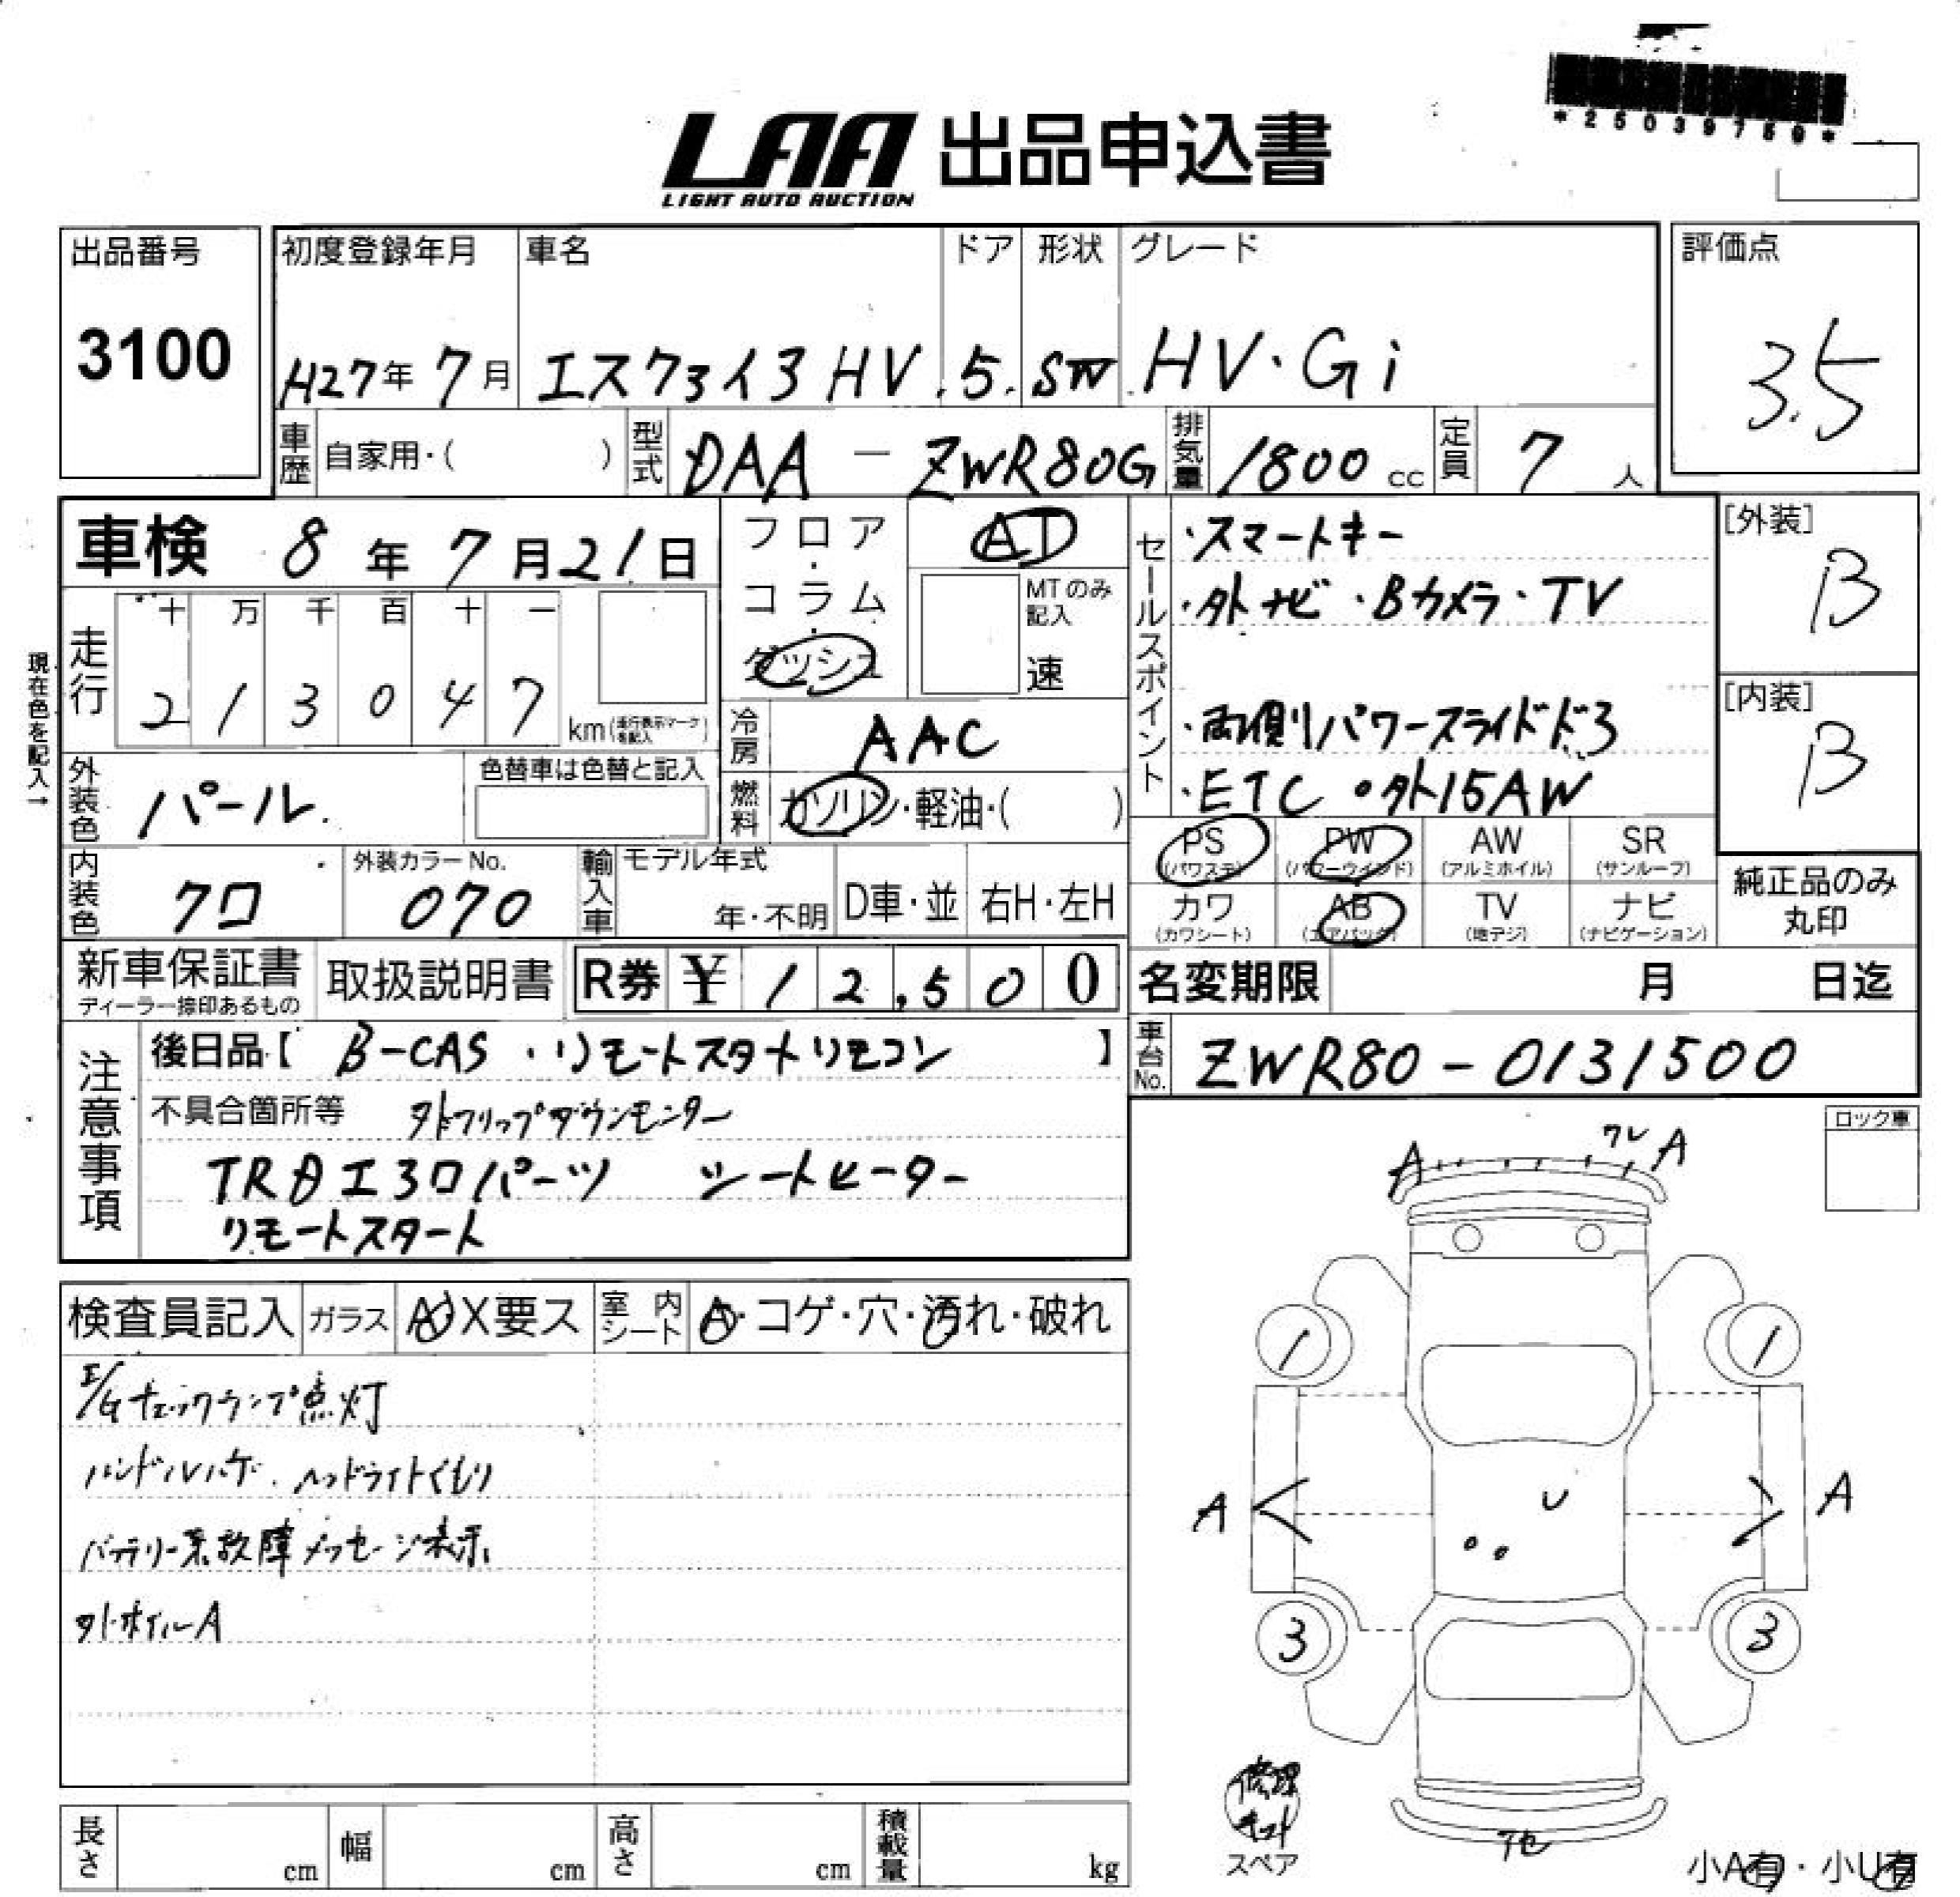 *25039759*
LAA 出品申込書
LIGHT AUTO AUCTION
出品番号
3100
初度登録年月
H27年 7月
車名
エスクァイヤ HV
ドア
5
形状
SW
グレード
HV・Gi
評価点
3.5
車歴
自家用・( )
型式
DAA - ZWR80G
排気量
1800 cc
定員
7 人
車検 8年 7月21日
フロア・コラム・ダッシュ
AT
MTのみ記入
速
セールスポイント
・スマートキー
・外ナビ・Bカメラ・TV
・両側パワースライドドア
・ETC ・外15AW
[外装]
B
[内装]
B
現在色を記入→
走行
十 万 千 百 十 一
2 1 3 0 4 7
km(走行表示マークを記入)
冷房
AAC
燃料
ガソリン・軽油・( )
外装色
パール
色替車は色替と記入
内装色
クロ
外装カラーNo.
070
輸入車
モデル年式
年・不明
D車・並
右H・左H
PS (パワステ)
PW (パワーウインド)
AW (アルミホイル)
SR (サンルーフ)
カワ (カワシート)
AB (エアバック)
TV (地デジ)
ナビ (ナビゲーション)
純正品のみ
丸印
新車保証書
ディーラー捺印あるもの
取扱説明書
R券 ¥12,500
名変期限 月 日迄
注意事項
後日品【 B-CAS ・リモートスタートリモコン 】
不具合箇所等 外フリップダウンモニター
TRDエアロパーツ シートヒーター
リモートスタート
車台No.
ZWR80-0131500
ロック車
検査員記入
ガラス
A・X要ス
室内シート
A・コゲ・穴・汚れ・破れ
E/Gチェックランプ点灯
ハンドルハゲ、ヘッドライトくもり
バッテリー系故障メッセージ表示
外ホイルA
A
ワレ A
1
1
A
U
A
3
3
修理キット
スペア
小A有・小U有
長さ cm
幅 cm
高さ cm
積載量 kg